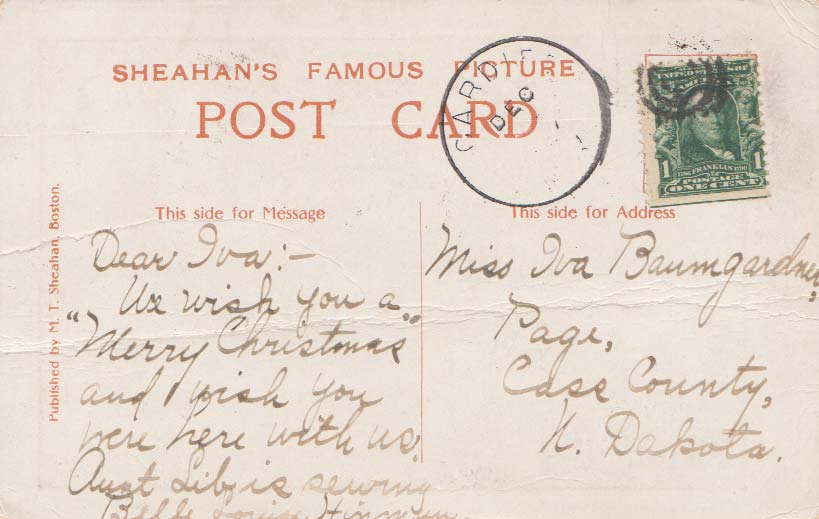 SHEAHAN'S FAMOUS PICTURE
POST CARD
CARDI
DEC
UNITED STATES OF
AMERICA
1
1706 FRANKLIN 1790
POSTAGE
ONE CENT
1
This side for Message
This side for Address
Published by M. T. Sheahan, Boston.
Dear Iva:-
We wish you a
"Merry Christmas"
and I wish you
were here with us.
Aunt Lib is sewing
Belle Louise
Miss Iva Baumgardner,
Page,
Case County,
N. Dakota.